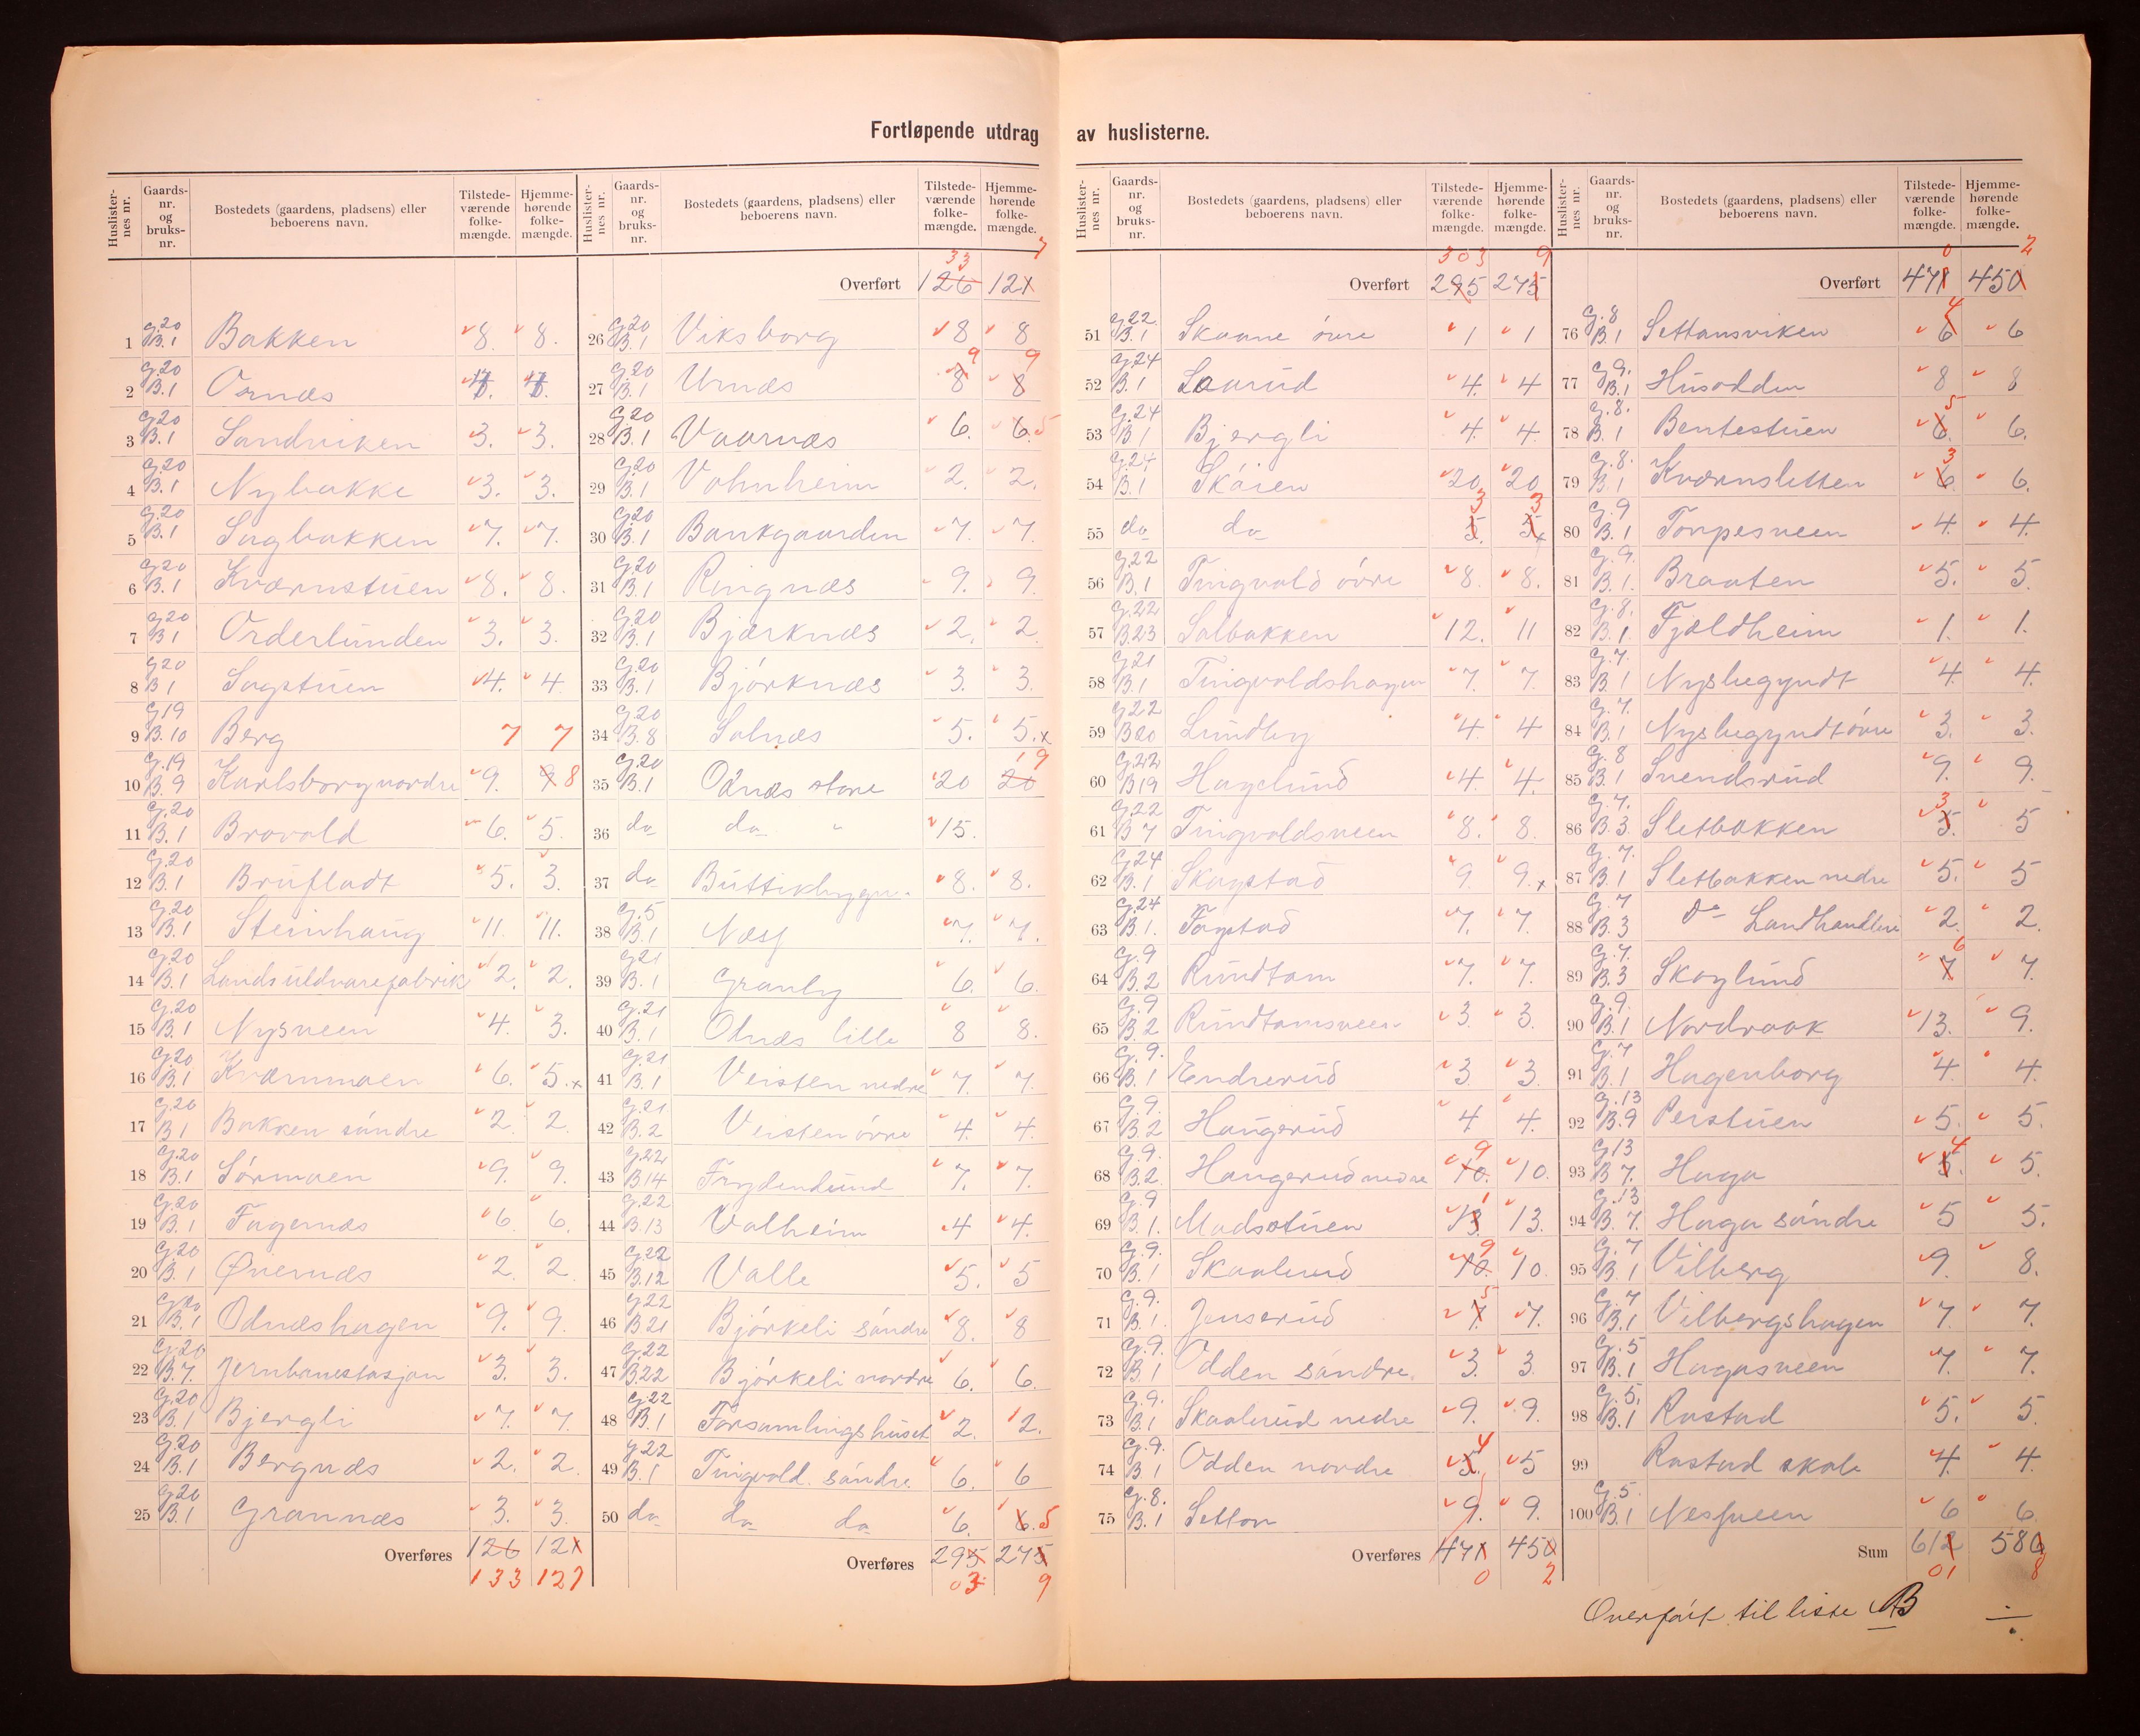 Fortløpende utdrag av huslisterne.
Huslisternes nr. Gaardsnr. og bruksnr. Bostedets (gaardens, pladsens) eller beboerens navn. Tilstedeværende folkemængde. Hjemmehørende folkemængde.
1 G.20 B.1 Bakken 8. 8.
2 G.20 B.1 Ornæs
3 G.20 B.1 Sandviken 3. 3.
4 G.20 B.1 Nybakke 3. 3.
5 G.20 B.1 Sagbakken 7. 7.
6 G.20 B.1 Kværnstuen 8. 8.
7 G.20 B.1 Orderlunden 3. 3.
8 G.20 B.1 Sagstuen 4. 4.
9 G.19 B.10 Berg 7 7
10 G.19 B.9 Karlsborg nordre 9. 9 8
11 G.20 B.1 Brovold 6. 5.
12 G.20 B.1 Brufladt 5. 3.
13 G.20 B.1 Steinhaug 11. 11.
14 G.20 B.1 Lands uldvarefabrik 2. 2.
15 G.20 B.1 Nysveen 4. 3.
16 G.20 B.1 Kværnmoen 6. 5. x
17 G.20 B.1 Bakken søndre 2. 2.
18 G.20 B.1 Sørmoen 9. 9.
19 G.20 B.1 Fagernæs 6. 6.
20 G.20 B.1 Øvernæs 2. 2
21 G.20 B.1 Odnæshagen 9. 9.
22 G.20 B.7. Jernbanestasjon 3. 3.
23 G.20 B.1 Bjergli 7. 7.
24 G.20 B.1 Bergnæs 2. 2
25 G.20 B.1 Grannæs 3. 3.
Overføres 126 121
133 127
Huslisternes nr. Gaardsnr. og bruksnr. Bostedets (gaardens, pladsens) eller beboerens navn. Tilstedeværende folkemængde. Hjemmehørende folkemængde.
33 7
Overført 126 121
26 G.20 B.1 Viksborg 8 8
27 G.20 B.1 Urnæs 8 9 8 9
28 G.20 B.1 Vaarnæs 6. 6. 5
29 G.20 B.1 Vohnheim 2. 2.
30 G.20 B.1 Bankgaarden 7. 7.
31 G.20 B.1 Ringnæs 9. 9.
32 G.20 B.1 Bjærknæs 2. 2
33 G.20 B.1 Bjørknæs 3. 3.
34 G.20 B.8 Solnæs 5. 5. x
35 G.20 B.1 Odnæs store 20 20 19
36 do do " 15.
37 do 8. 8.
38 G.5 B.1 Næss 7. 7.
39 G.21 B.1 Granly 6. 6.
40 G.21 B.1 Odnæs lille 8 8.
41 G.21 B.1 Veisten nedre 7. 7.
42 G.21 B.2 Veisten øvre 4. 4.
43 G.22 B.14 Frydenlund 7. 7.
44 G.22 B.13 Valheim 4 4.
45 G.22 B.12 Valle 5. 5
46 G.22 B.21 Bjørkeli søndre 8. 8
47 G.22 B.22 Bjørkeli nordre 6. 6.
48 G.22 B.1 Forsamlingshuset 2. 2.
49 G.22 B.1 Tingvold søndre. 6. 6
50 do do do 6. 6. 5
Overføres 295 275
03 9
Huslisternes nr. Gaardsnr. og bruksnr. Bostedets (gaardens, pladsens) eller beboerens navn. Tilstedeværende folkemængde. Hjemmehørende folkemængde.
303 9
Overført 295 275
51 G.22 B.1 Skaane øvre 1 1
52 G.24 B.1 Laarud 4. 4
53 G.24 B.1 Bjergli 4. 4.
54 G.24 B.1 Skøien 20 20
55 do do 5. 3 5 3 x
56 G.22 B.1 Tingvold øvre 8. 8.
57 G.22 B.23 Solbakken 12. 11
58 G.21 B.1 Tingvoldshagen 7. 7.
59 G.22 B.20 Lundby 4. 4
60 G.22 B.19 Hagelund 4. 4.
61 G.22 B.7 Tingvoldsveen 8. 8.
62 G.24 B.1 Skogstad 9. 9. x
63 G.24 B.1. Fagstad 7. 7.
64 G.9 B.2 Rundtom 7. 7.
65 G.9 B.2 Rundtomsveen 3. 3.
66 G.9. B.1 Endrerud 3. 3.
67 G.9. B.2 Haugerud 4 4.
68 G.9. B.2. Haugerud nedre 10. 9 10.
69 G.9 B.1. Madsstuen 13 1 13.
70 G.9. B.1 Skaalerud 10. 9 10.
71 G.9. B.1. Jenserud 7. 5 7.
72 G.9. B.1 Odden søndre. 3. 3.
73 G.9. B.1 Skaalerud nedre 9. 9.
74 G.9. B.1 Odden nordre 5. 4 5
75 G.8. B.1 Setton 9. 9.
Overføres 471 450
0 2
Huslisternes nr. Gaardsnr. og bruksnr. Bostedets (gaardens, pladsens) eller beboerens navn. Tilstedeværende folkemængde. Hjemmehørende folkemængde.
0 2
Overført 471 450
76 G.8 B.1 Settonsviken 6 4 6
77 G.9. B.1 Husodden 8 8
78 G.8. B.1 Bentestuen 6. 5 6.
79 G.8. B.1 Kværnsletten 6. 3 6.
80 G.9 B.1 Torpesveen 4. 4.
81 G.9. B.1. Braaten 5. 5.
82 G.8. B.1. Fjeldheim 1. 1.
83 G.7. B.1 Nysbegyndt 4. 4.
84 G.7. B.1 Nysbegyndt øvre 3. 3.
85 G.8 B.1 Svendsrud 9. 9.
86 G.7. B.3. Sletbakken 5. 3 5
87 G.7. B.1 Sletbakken nedre 5. 5
88 G.7 B.3 do Landhandleri 2. 2.
89 G.7. B.3 Skoglund 7 6 7.
90 G.9. B.1 Nordraak 13. 9.
91 G.7 B.1 Hagenborg 4. 4.
92 G.13 B.9 Perstuen 5. 5.
93 G.13 B.7. Haga 5. 4 5.
94 G.13 B.7. Haga søndre 5 5.
95 G.7 B.1 Vilberg 9. 8.
96 G.7 B.1 Vilbergshagen 7. 7.
97 G.5 B.1 Hagasveen 7. 7.
98 G.5. B.1 Rastad 5. 5.
99 Rastad skole 4. 4.
100 G.5. B.1 Nessveen 6 6.
Sum 612 580
01 8
Overført til liste AB